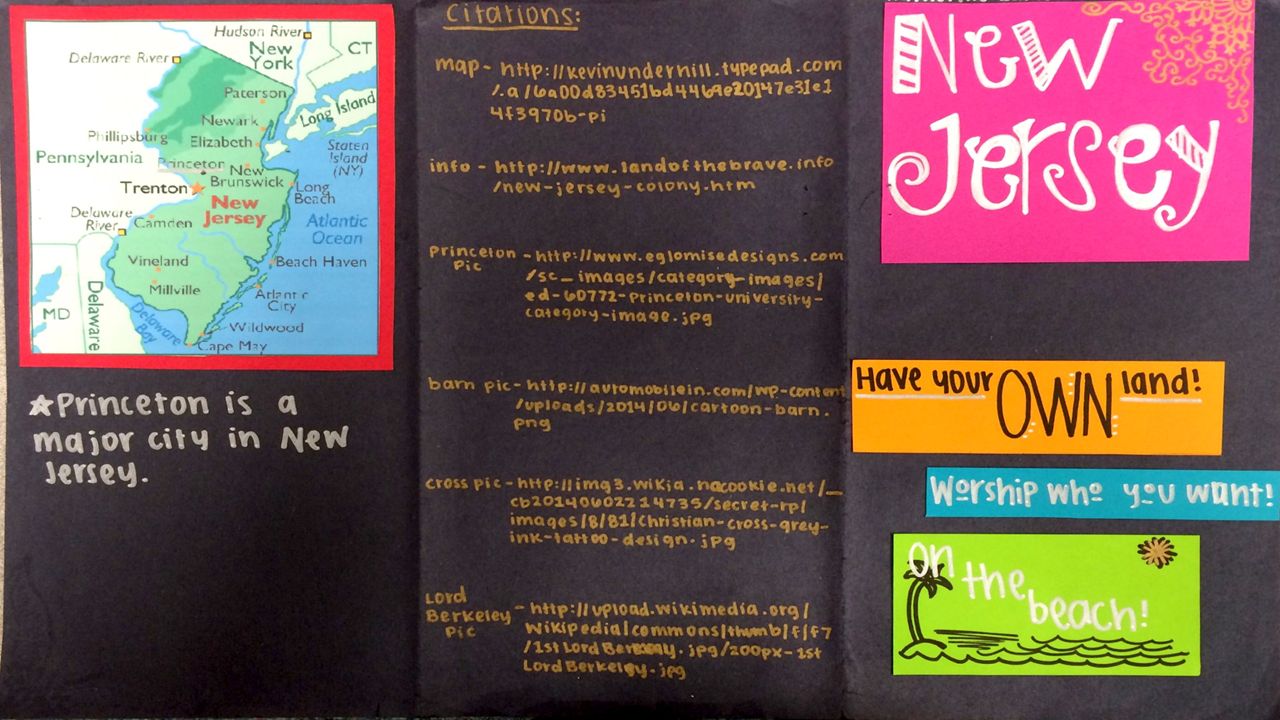 Hudson River
New York
CT
Delaware River
Paterson
Long Island
Newark
Phillipsburg
Elizabeth
Staten Island (NY)
Pennsylvania
Princeton
New Brunswick
Trenton
Long Beach
New Jersey
Delaware River
Camden
Atlantic Ocean
Vineland
Beach Haven
Millville
Atlantic City
MD
Delaware
Delaware Bay
Wildwood
Cape May
★Princeton is a
major city in New
Jersey.
Citations:
map - http://kevinunderhill.typepad.com
/.a/6a00d83451bd4469e20147e31e1
4f3970b-pi
info - http://www.landofthebrave.info
/new-jersey-colony.htm
Princeton Pic - http://www.eglomisedesigns.com
/sc_images/category-images/
ed-60772-Princeton-university-
category-image.jpg
barn pic - http://automobilein.com/wp-content
/uploads/2014/06/cartoon-barn.
png
cross pic - http://img3.wikia.nacookie.net/__
cb20140602214735/secret-rp/
images/8/81/Christian-cross-grey-
ink-tattoo-design.jpg
Lord Berkeley Pic - http://upload.wikimedia.org/
wikipedia/commons/thumb/f/f7
/1st Lord Berkeley.jpg/200px-1st
Lord Berkeley.jpg
New
Jersey
Have your OWN land!
Worship who you want!
on the beach!